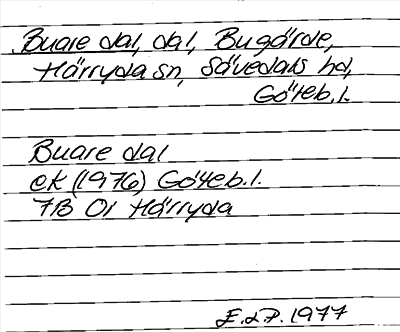 Buare dal, dal, Bugärde,
Härryda sn, Sävedals hd,
Göteb.l.
Buare dal
ek (1976) Göteb.l.
7B 01 Härryda
E.d.P. 1977